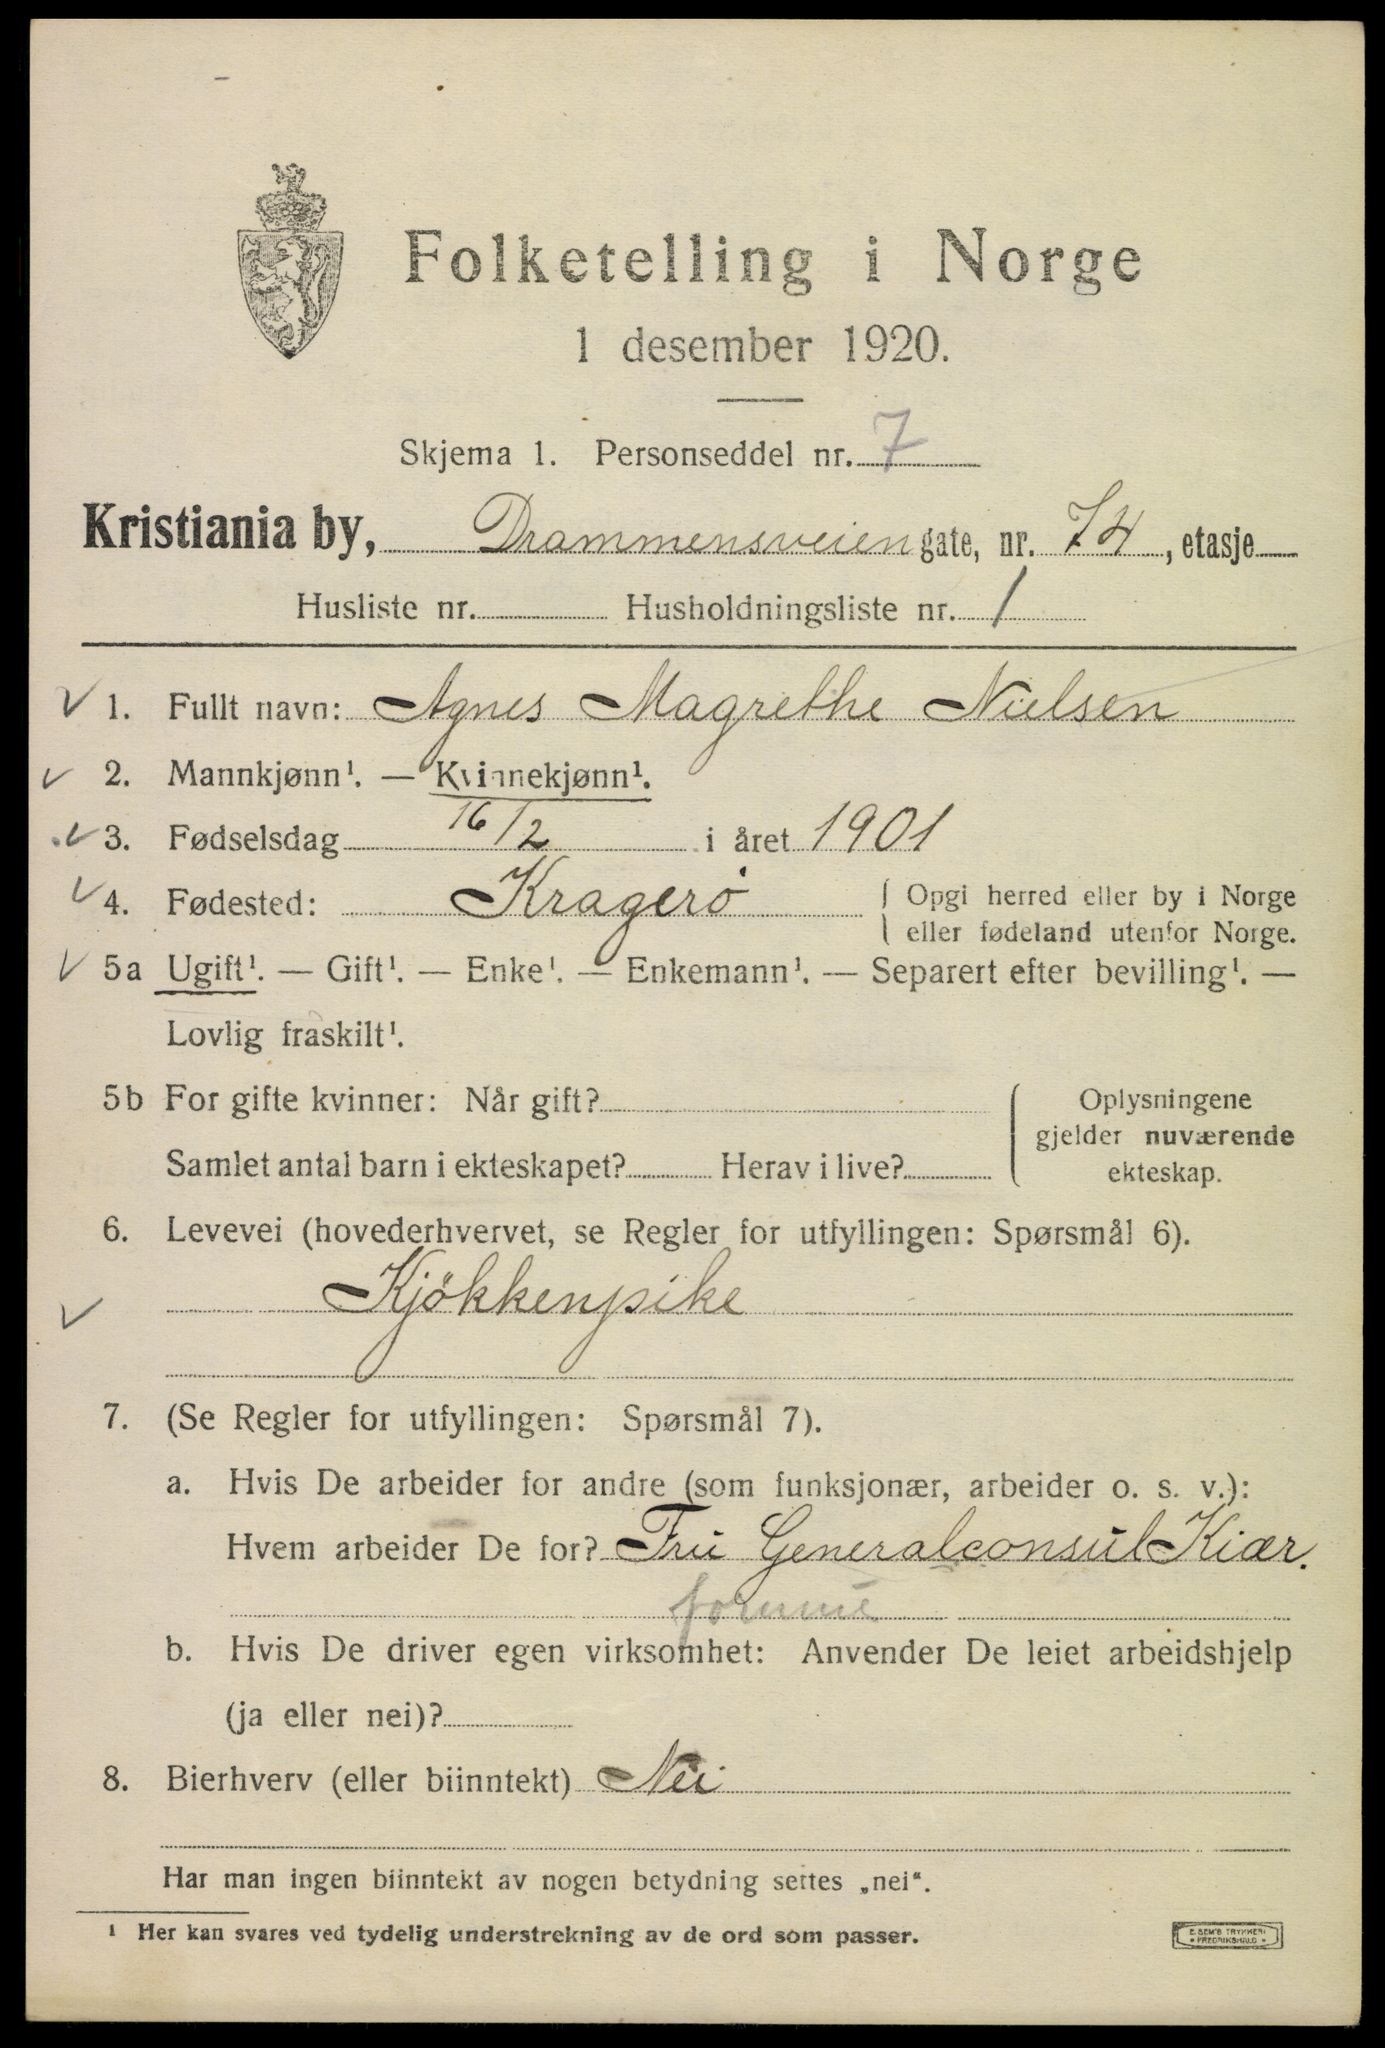 Folketelling i Norge
1 desember 1920.
Skjema 1. Personseddel nr. 7
Kristiania by, Drammensveien gate, nr. 74, etasje
Husliste nr. Husholdningsliste nr. 1
1. Fullt navn: Agnes Magrethe Nielsen
2. Mannkjønn¹. — Kvinnekjønn¹.
3. Fødselsdag 16/2 i året 1901
4. Fødested: Kragerö { Opgi herred eller by i Norge
eller fødeland utenfor Norge.
5a Ugift¹. — Gift¹. — Enke¹. — Enkemann¹. — Separert efter bevilling¹. —
Lovlig fraskilt¹.
5b For gifte kvinner: Når gift?
Samlet antal barn i ekteskapet? Herav i live?
Oplysningene
gjelder nuværende
ekteskap.
6. Levevei (hovederhvervet, se Regler for utfyllingen: Spørsmål 6).
Kjökkenpike
7. (Se Regler for utfyllingen: Spørsmål 7).
a. Hvis De arbeider for andre (som funksjonær, arbeider o. s. v.):
Hvem arbeider De for? Fru Generalconsul Kiær.
b. Hvis De driver egen virksomhet: Anvender De leiet arbeidshjelp
(ja eller nei)?
8. Bierhverv (eller biinntekt) Nei
Har man ingen biinntekt av nogen betydning settes „nei“.
¹ Her kan svares ved tydelig understrekning av de ord som passer.
E. SEM'S TRYKKERI
* FREDRIKSHALD *